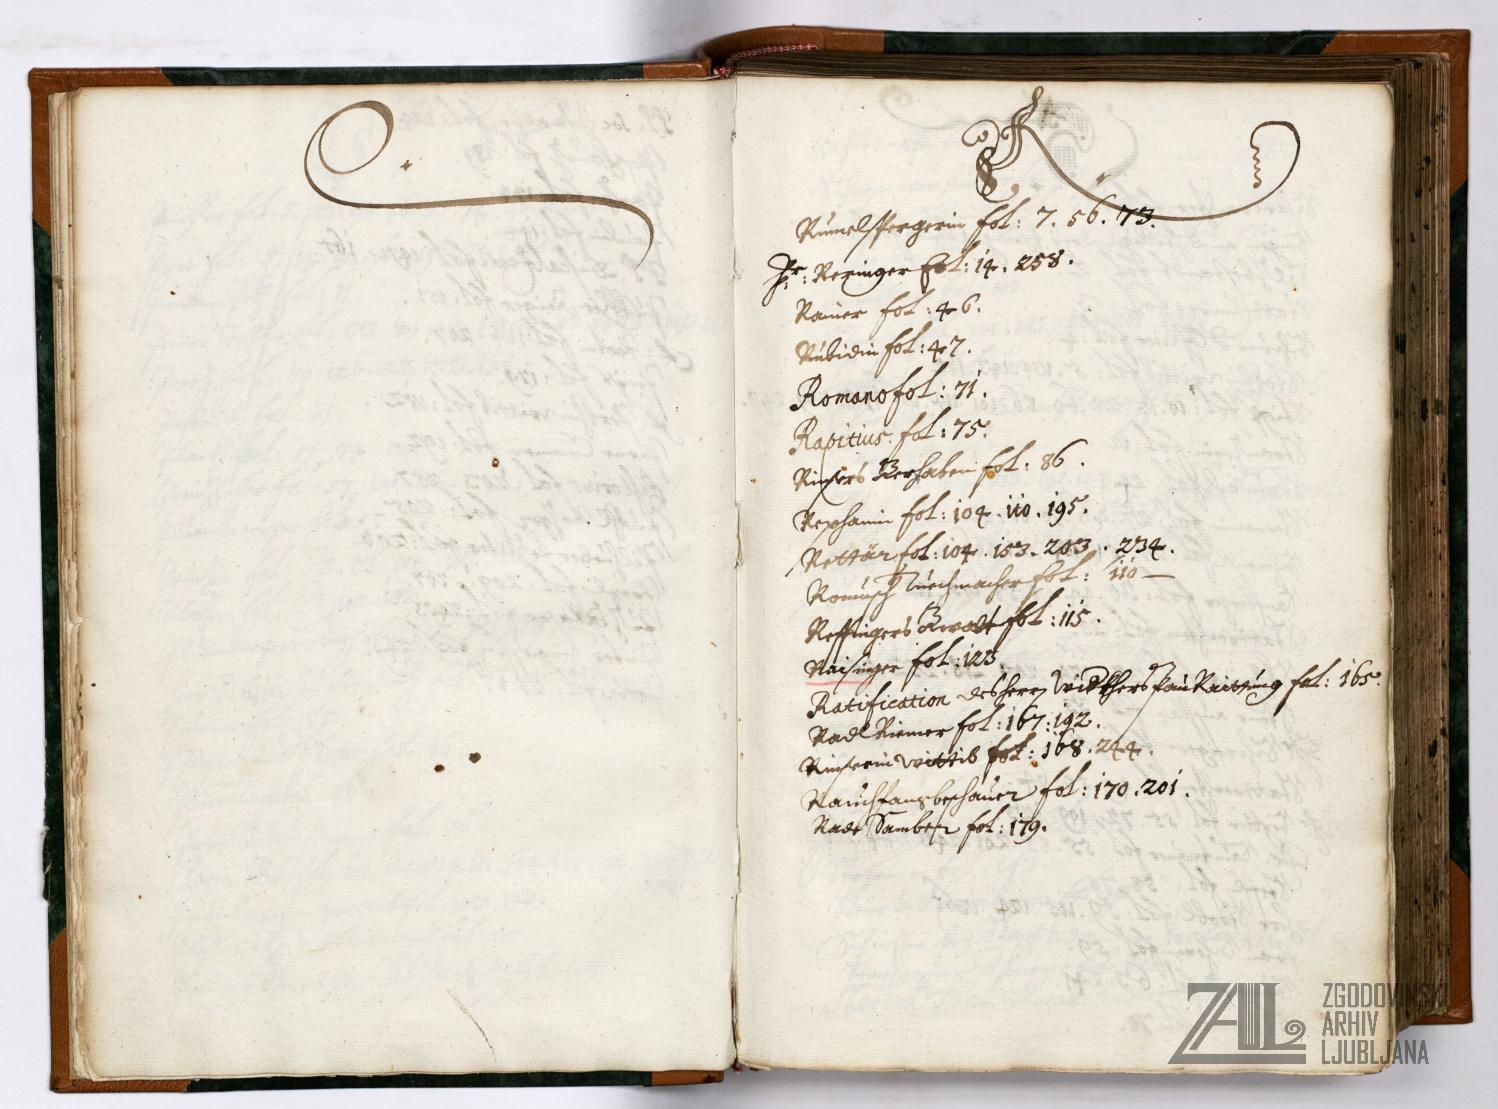 Q.
R.
Rumelspergerin fol: 7. 56. 73.
Hr: Reringer fol: 14. 258.
Rainer fol: 46.
Rubidin fol: 47.
Romano fol: 71.
Rapitius. fol: 75.
fol: 86.
fol: 104. 110. 195.
Rettär fol: 104. 153. 203. 234.
Romusch Tuechmacher fol: 110
Reffingers fol: 115.
Raisinger fol: 123.
Ratification des herrn fol: 165.
Radl Riemer fol: 167: 192.
wittib fol: 168. 244.
Rauchfangbeschauer fol: 170. 201.
fol: 179.
ZAL
ZGODOVINSKI
ARHIV
LJUBLJANA